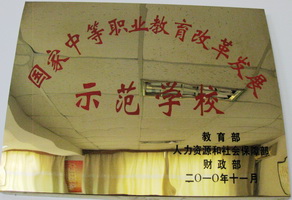 国家中等职业教育改革发展
示范学校
教育部
人力资源和社会保障部
财政部
二〇一〇年十一月